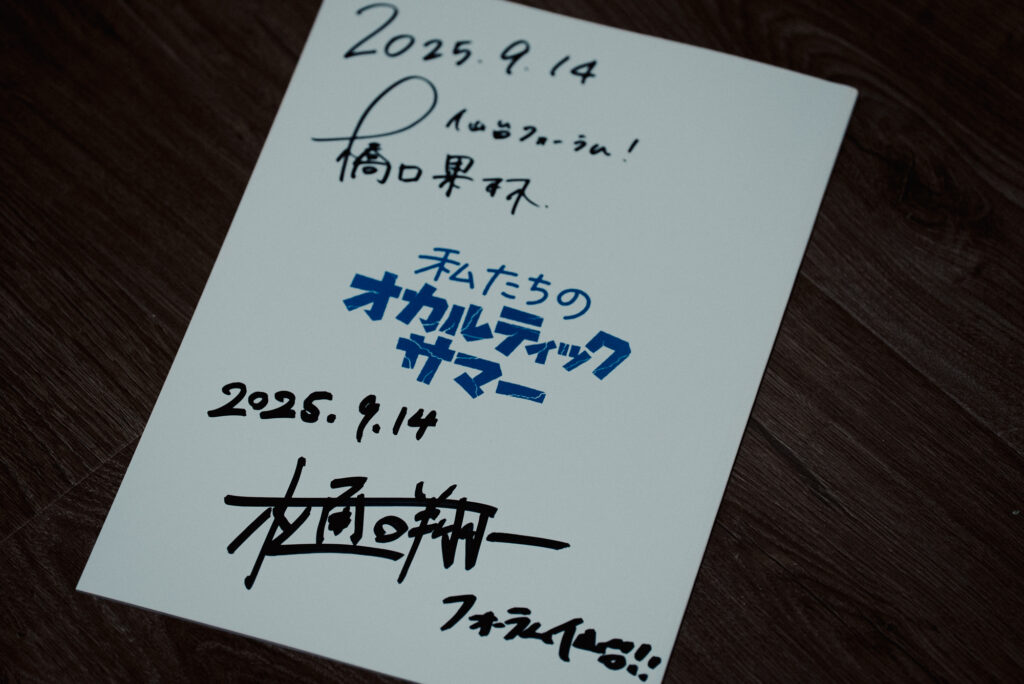 2025.9.14
仙台フォーラム!
橋口果林.
私たちの
オカルティック
サマー
2025.9.14
樋口翔一
フォーラム仙台!!